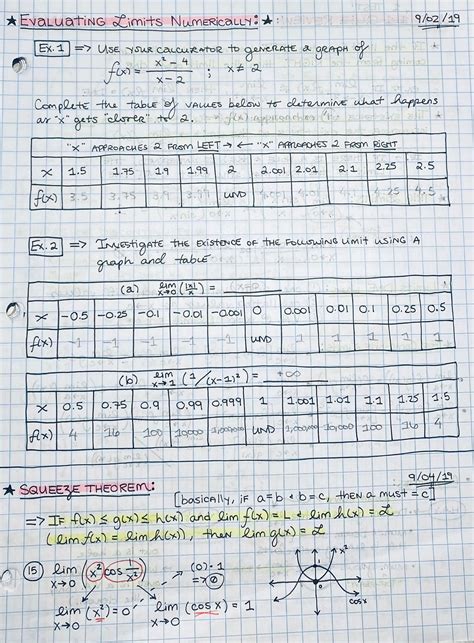 ★ EVALUATING LIMITS NUMERICALLY: ★ 9/02/19
EX. 1 => USE YOUR CALCULATOR TO GENERATE A GRAPH OF
f(x) = x² - 4 / x - 2 ; x ≠ 2
COMPLETE THE TABLE OF VALUES BELOW TO DETERMINE WHAT HAPPENS
AS "X" GETS "CLOSER" TO 2.
"X" APPROACHES 2 FROM LEFT → ← "X" APPROACHES 2 FROM RIGHT
x 1.5 1.75 1.9 1.99 2 2.001 2.01 2.1 2.25 2.5
f(x) 3.5 3.75 3.9 3.99 UND 4.001 4.01 4.1 4.25 4.5
EX. 2 => INVESTIGATE THE EXISTENCE OF THE FOLLOWING LIMIT USING A
graph and table
(a) lim x→0 (|x|/x) =
x -0.5 -0.25 -0.1 -0.01 -0.001 0 0.001 0.01 0.1 0.25 0.5
f(x) -1 -1 -1 -1 -1 UND 1 1 1 1 1
(b) lim x→1 (1/(x-1)²) = +∞
x 0.5 0.75 0.9 0.99 0.999 1 1.001 1.01 1.1 1.25 1.5
f(x) 4 16 100 10,000 1,000,000 UND 1,000,000 10,000 100 16 4
9/04/19
★ SQUEEZE THEOREM:
[basically, if a=b & b=c, then a must = c]
=> IF f(x) ≤ g(x) ≤ h(x) and lim f(x) = L & lim h(x) = L
(lim f(x) = lim h(x)), then lim g(x) = L
15 lim x→0 (x² cos 1/x²) (0)·1
=> 0
x²
0
cos x
lim x→0 (x²) = 0 lim x→0 (cos x) = 1